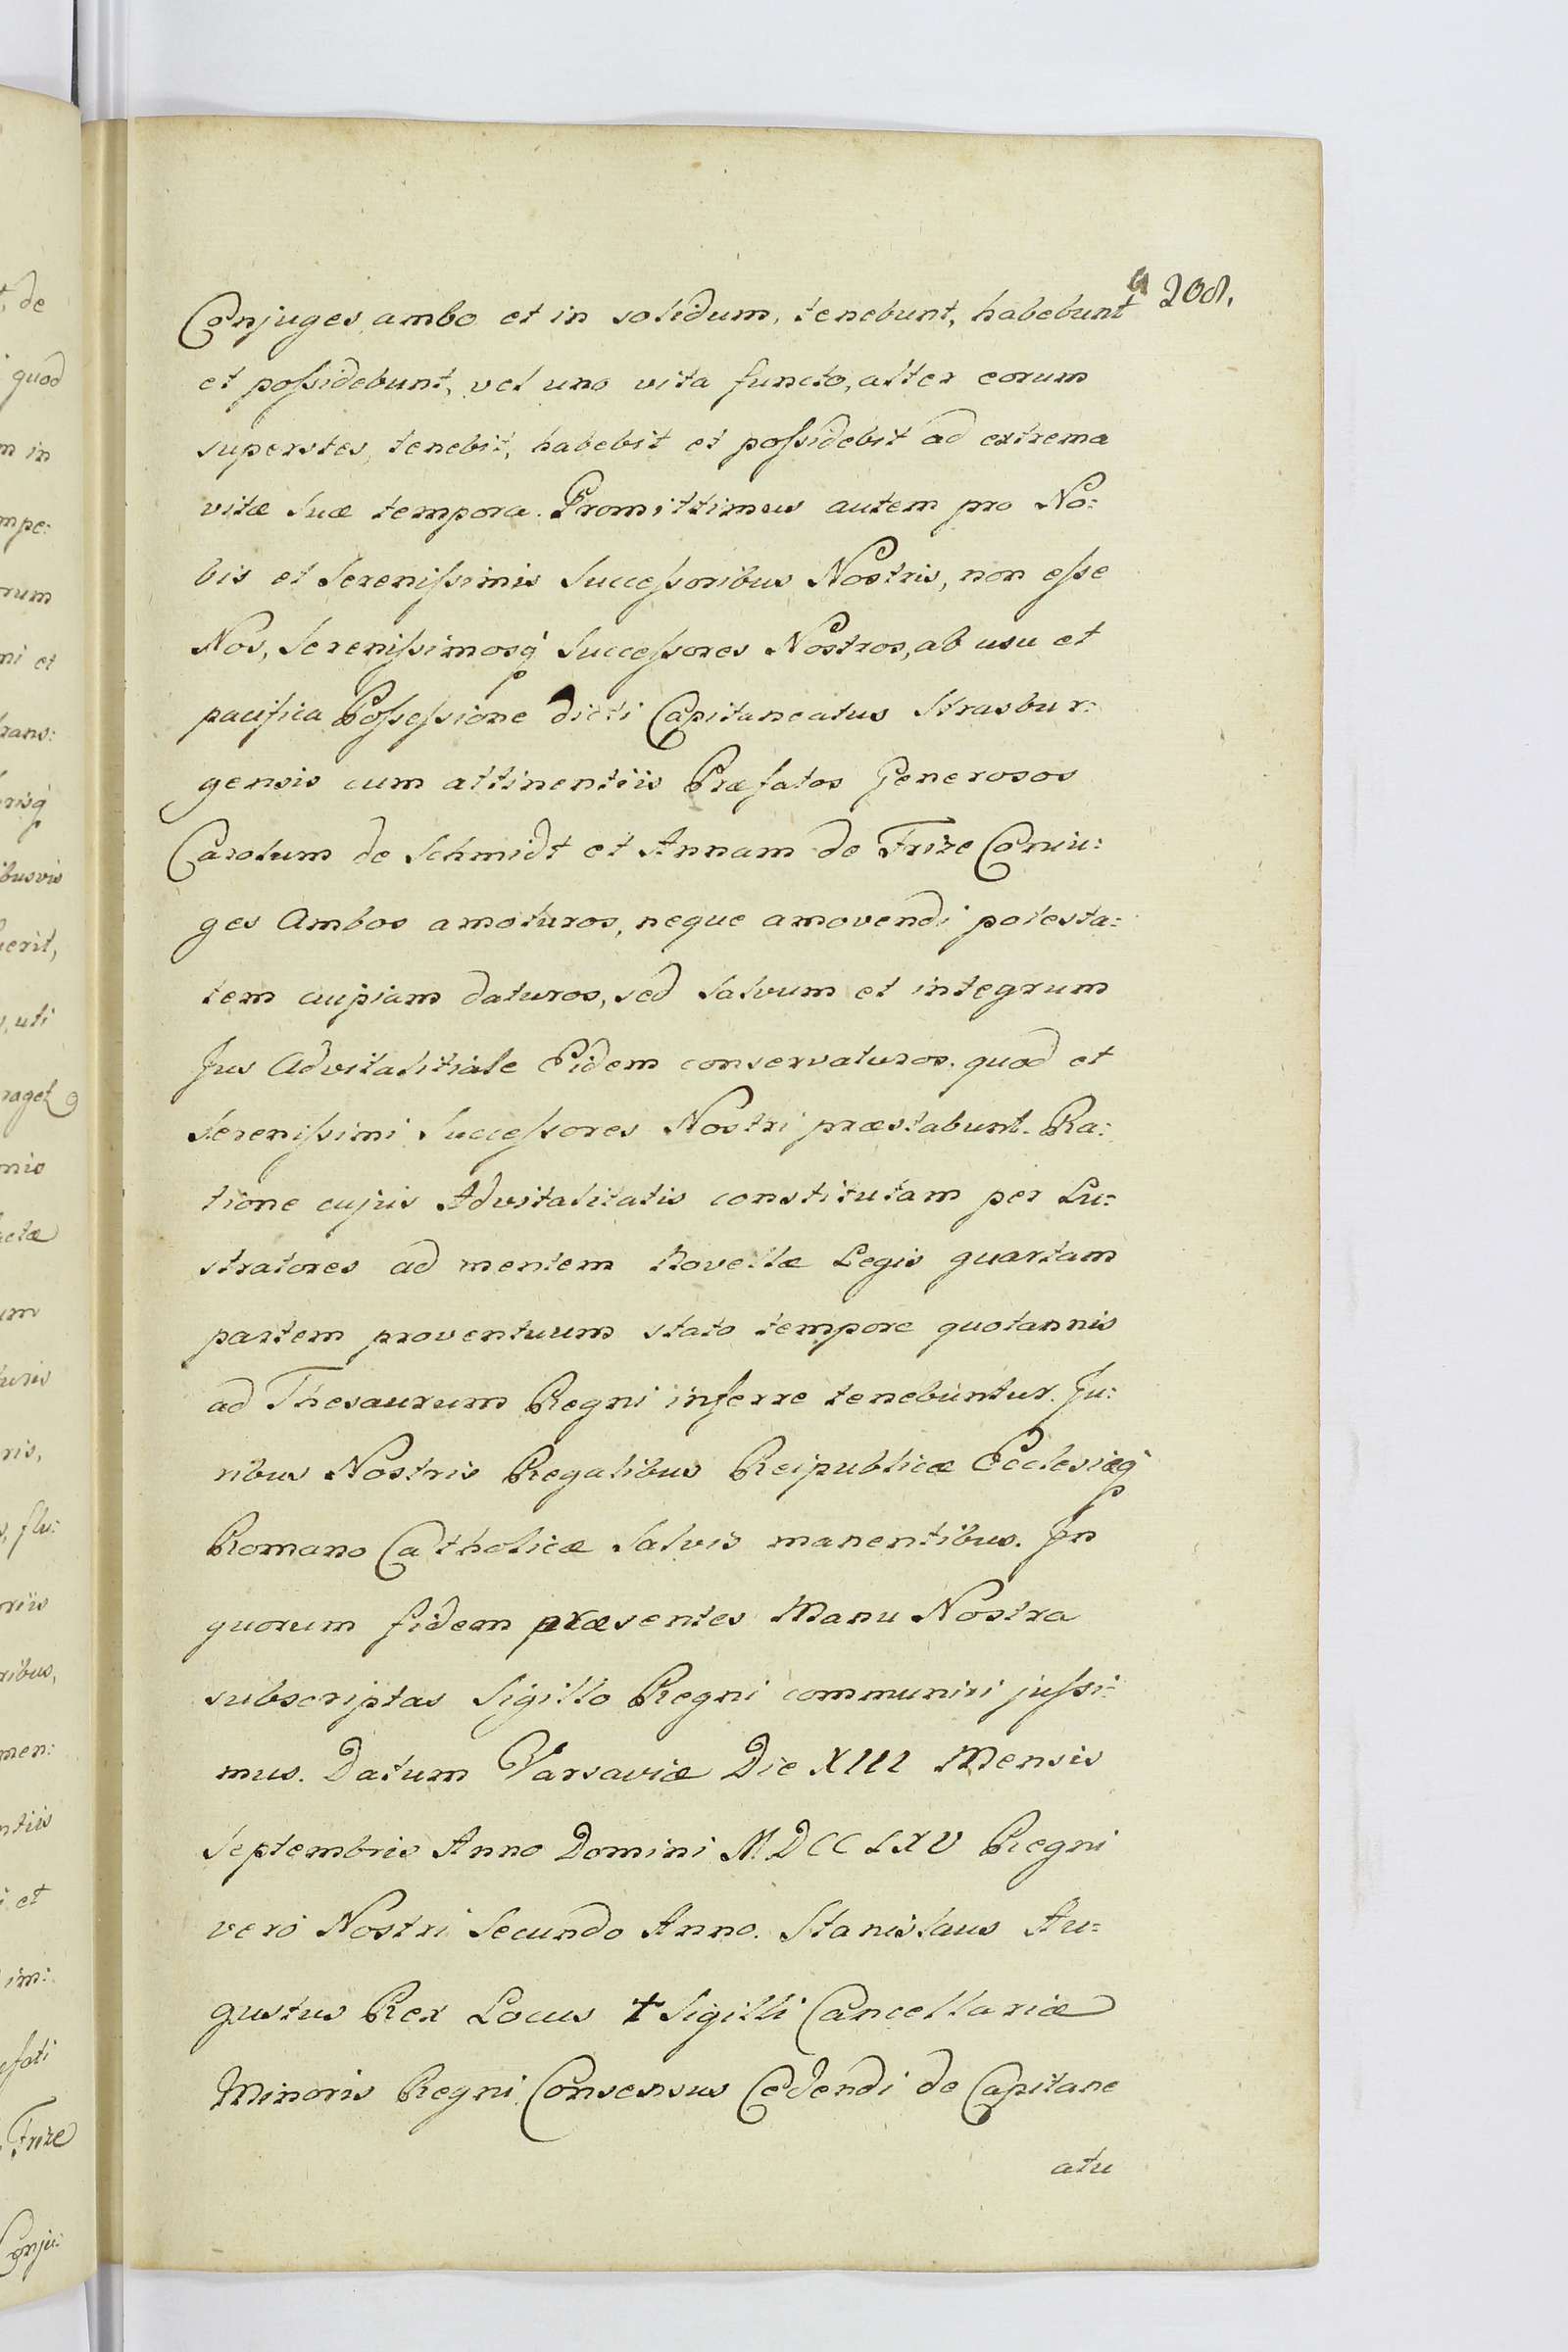 208.
Conjuges ambo et in solidum, tenebunt, habebunt
et poſsidebunt, vel uno vita functo, alter eorum
superstes, tenebit, habebit et poſsidebit ad extrema
vitæ suæ tempora. Promittimus autem pro No:
bis et Sereniſsimis Succeſsoribus Nostris, non eſse
Nos, Sereniſsimosq́ Succeſsores Nostros, ab usu et
pacifica Poſseſsione dicti Capitaneatus Strasbur:
gensis cum attinentiis Præfatos Generosos
Carolum de Schmidt et Annam de Frize Conju:
ges Ambos amoturos, neque amovendi potesta:
tem cuipiam daturos, sed salvum et integrum
Jus Advitalitiale Eidem conservaturos. quod et
Sereniſsimi Succeſsores Nostri præstabunt. Ra:
tione cujus Advitalitatis constitutam per Lu:
stratores ad mentem Novellæ Legis quartam
partem proventuum stato tempore quotannis
ad Thesaurum Regni inferre tenebuntur. Ju:
ribus Nostris Regalibus Reipublicæ Ecclesiæq́
Romano Catholicæ Salvis manentibus. Jn
quorum fidem præsentes Manu Nostra
subscriptas Sigillo Regni communiri juſsi:
mus. Datum Varsaviæ Die XIII Mensis
Septembris Anno Domini MDCCLXV Regni
vero Nostri Secundo Anno. Stanislaus Au:
gustus Rex Locus † Sigilli Cancellariæ
Minoris Regni. Consensus Cedendi de Capitane
atu
t, de
quod
m in
mpe:
rum
ni et
rans:
risq́
ibusvis
erit,
, uti
mis
um
ris,
, flu:
riis
ribus,
men:
ntiis
i et
im:
fati
Frize
Conju: